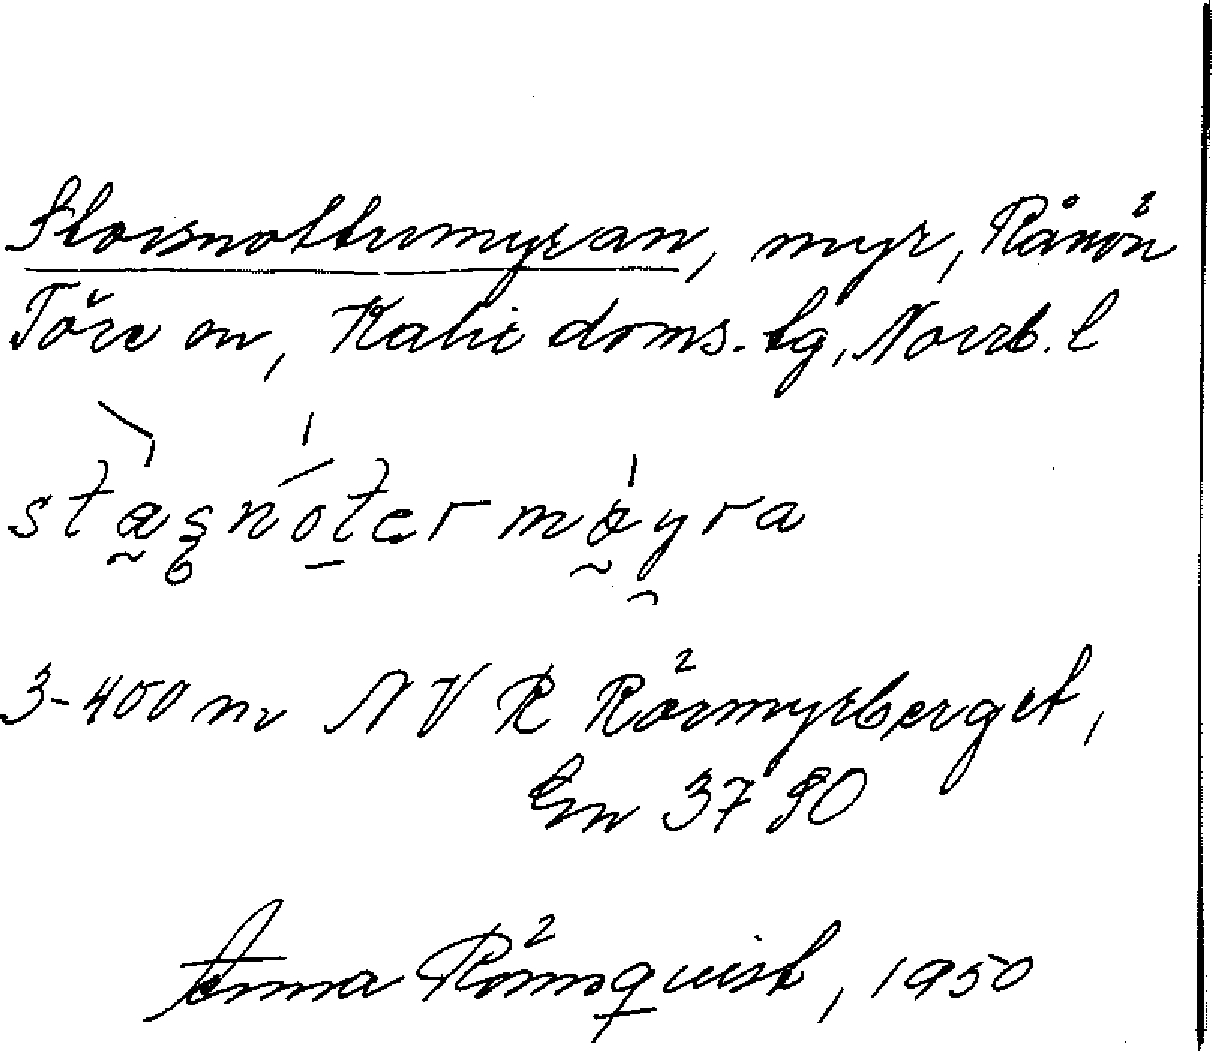 Storsnottermyran, myr, Rånön
Töre sn, Kalix doms. tg, Norrb. l
3-400 m NV R Rörmyrberget,
En 3790
Anna Rönnquist, 1950